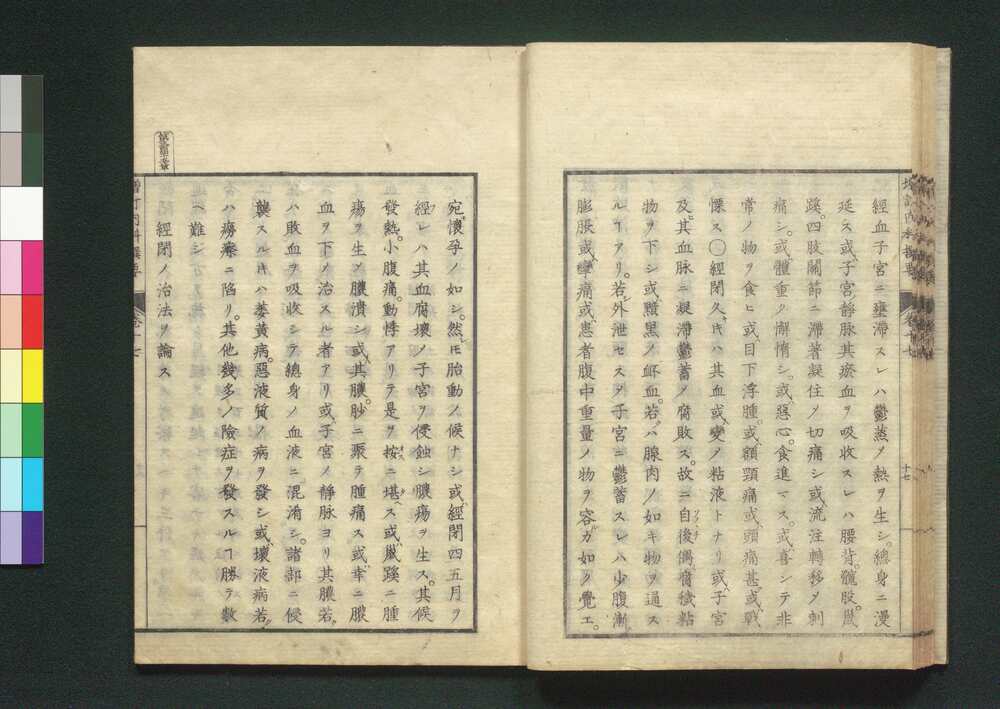 經血子宮ニ壅滯スレハ鬱蒸ノ熱ヲ生シ。總身ニ漫
延ス或ハ子宮靜脉其瘀血ヲ吸收スレハ腰背。髖股。鼠
蹊。四肢關節ニ滯著凝住ノ切痛シ或ハ流注轉移ノ刺
痛シ。或ハ體重ク懈惰シ。或ハ惡心。食進マス。或ハ喜シテ非
常ノ物ヲ食ヒ或ハ目下浮腫。或ハ額頸痛或ハ頭痛甚。或ハ戰
慄ス〇經閉久キハ其血或ハ變ノ粘液トナリ或ハ子宮
及ヒ其血脉ニ凝滯鬱蓄ノ腐敗ス。故ニ自後偶腐穢粘
物ヲ下シ或ハ黯黒ノ衃血。若ハ腺肉ノ如キ物ヲ通ス
ルヿアリ。若シ外泄セスノ子宮ニ鬱蓄スレハ少腹漸
膨脹或ハ攣痛或ハ患者腹中重量ノ物ヲ容ルガ如ク覺エ。
十七
宛モ懷孕ノ如シ。然レモ胎動ノ候ナシ或ハ經閉四五月ヲ
經レハ其血腐壞ノ子宮ヲ侵蝕シ膿瘍ヲ生ス。其候
發熱。小腹痛。動悸アリテ是ヲ按ニ堪ヘス或ハ鼠蹊ニ腫
瘍ヲ生ノ膿潰シ或ハ其膿。䏚ニ聚テ腫痛ス或ハ幸ニ膿
血ヲ下ノ治スル者アリ或ハ子宮ノ靜脉ヨリ其膿若
ハ敗血ヲ吸收シテ總身ノ血液ニ混淆シ。諸部ニ侵
襲スルキハ萎黄病。惡液質ノ病ヲ發シ或ハ壞液病若
ハ癆瘵ニ陷リ。其他幾多ノ險症ヲ發スルヿ勝テ數
ヘ難シ
經閉ノ治法ヲ論ス